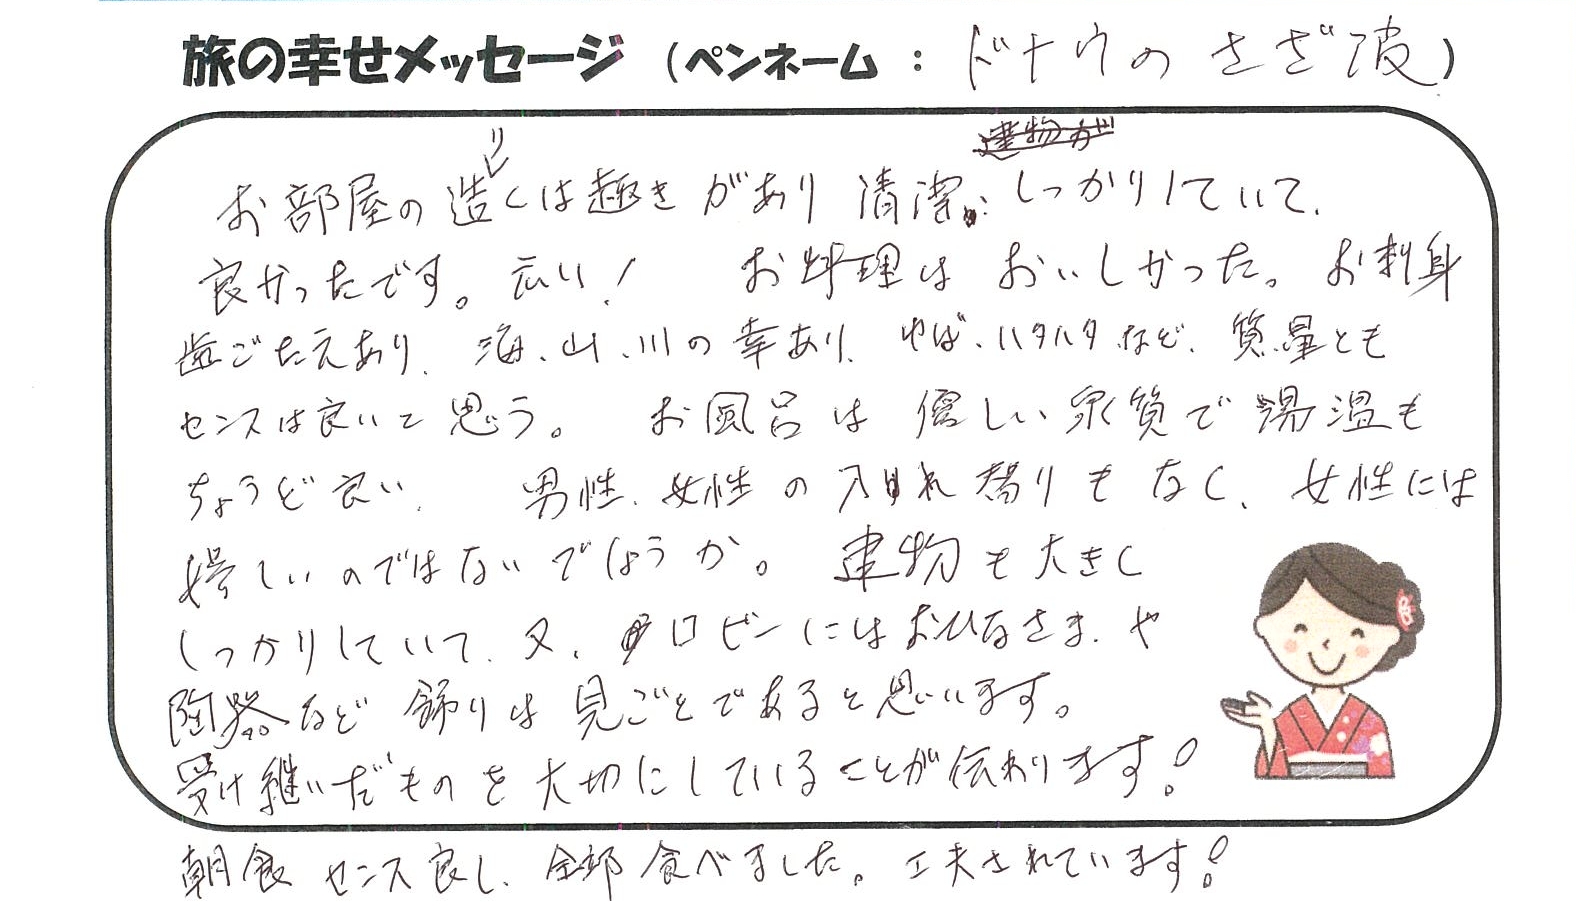 旅の幸せメッセージ (ペンネーム : ドナウの さざ波)
建物が
お部屋の造りは趣きがあり 清潔、しっかりしていて、
良かったです。広い! お料理は おいしかった。お刺身
歯ごたえあり、海、山、川の幸あり、ゆば、ハタハタなど、質量とも
センスは良いと思う。 お風呂は 優しい泉質で湯温も
ちょうど良い、 男性、女性の入れ替りもなく、女性には
嬉しいのではないでしょうか。 建物も大きく
しっかりしていて、又、ロビーにはおひなさま、や
陶器など 飾りは見ごとであると思います。
受け継いだものを大切にしていることが伝わります!
朝食 センス良し、全部食べました。工夫されています!